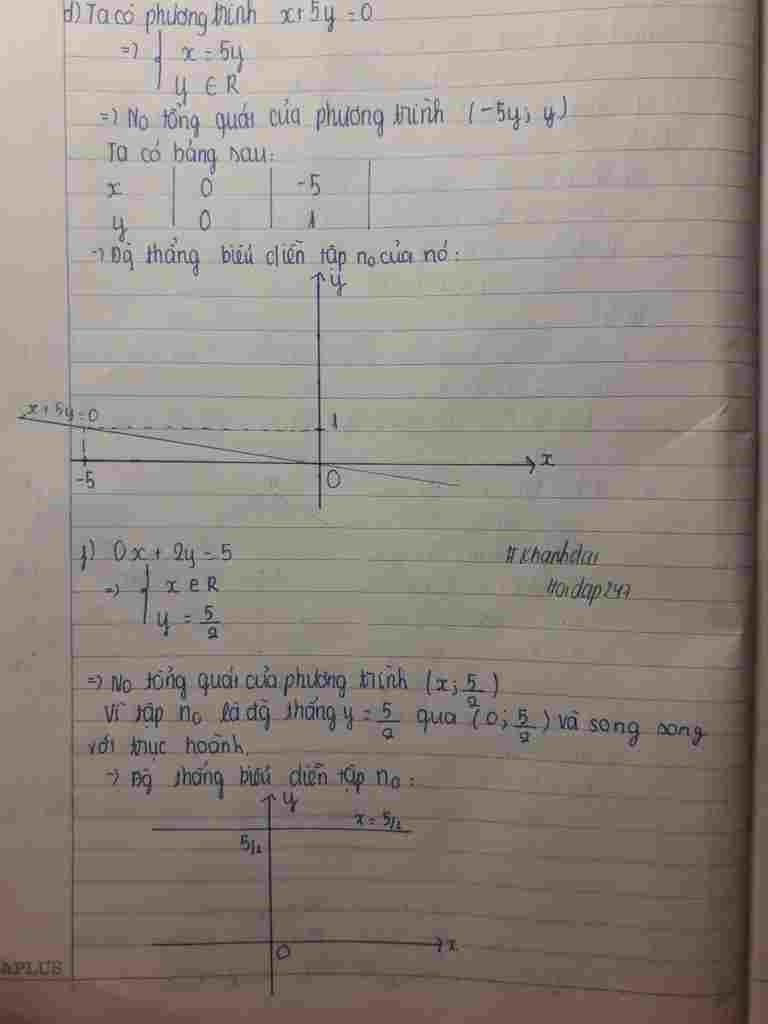 d) Ta có phương trình x + 5y = 0
=> { x = 5y
y ∈ R
=> No tổng quát của phương trình (-5y; y)
Ta có bảng sau:
x | 0 | -5 |
y | 0 | 1 |
-> Đg thẳng biểu diễn tập no của nó:
y
x + 5y = 0
1
x
-5
0
f) 0x + 2y = 5
=> { x ∈ R
y = 5/2
#Khanhdai
Hoidap247
=> No tổng quát của phương trình (x; 5/2)
Vì tập no là đg thẳng y = 5/2 qua (0; 5/2) và song song
với trục hoành.
-> Đg thẳng biểu diễn tập no:
y
x = 5/2
5/2
x
0
APLUS